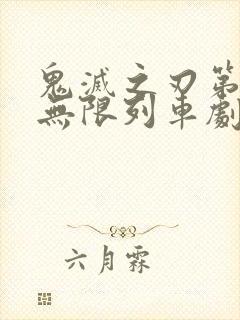 鬼滅之刃第
無限列車劇
六月霖